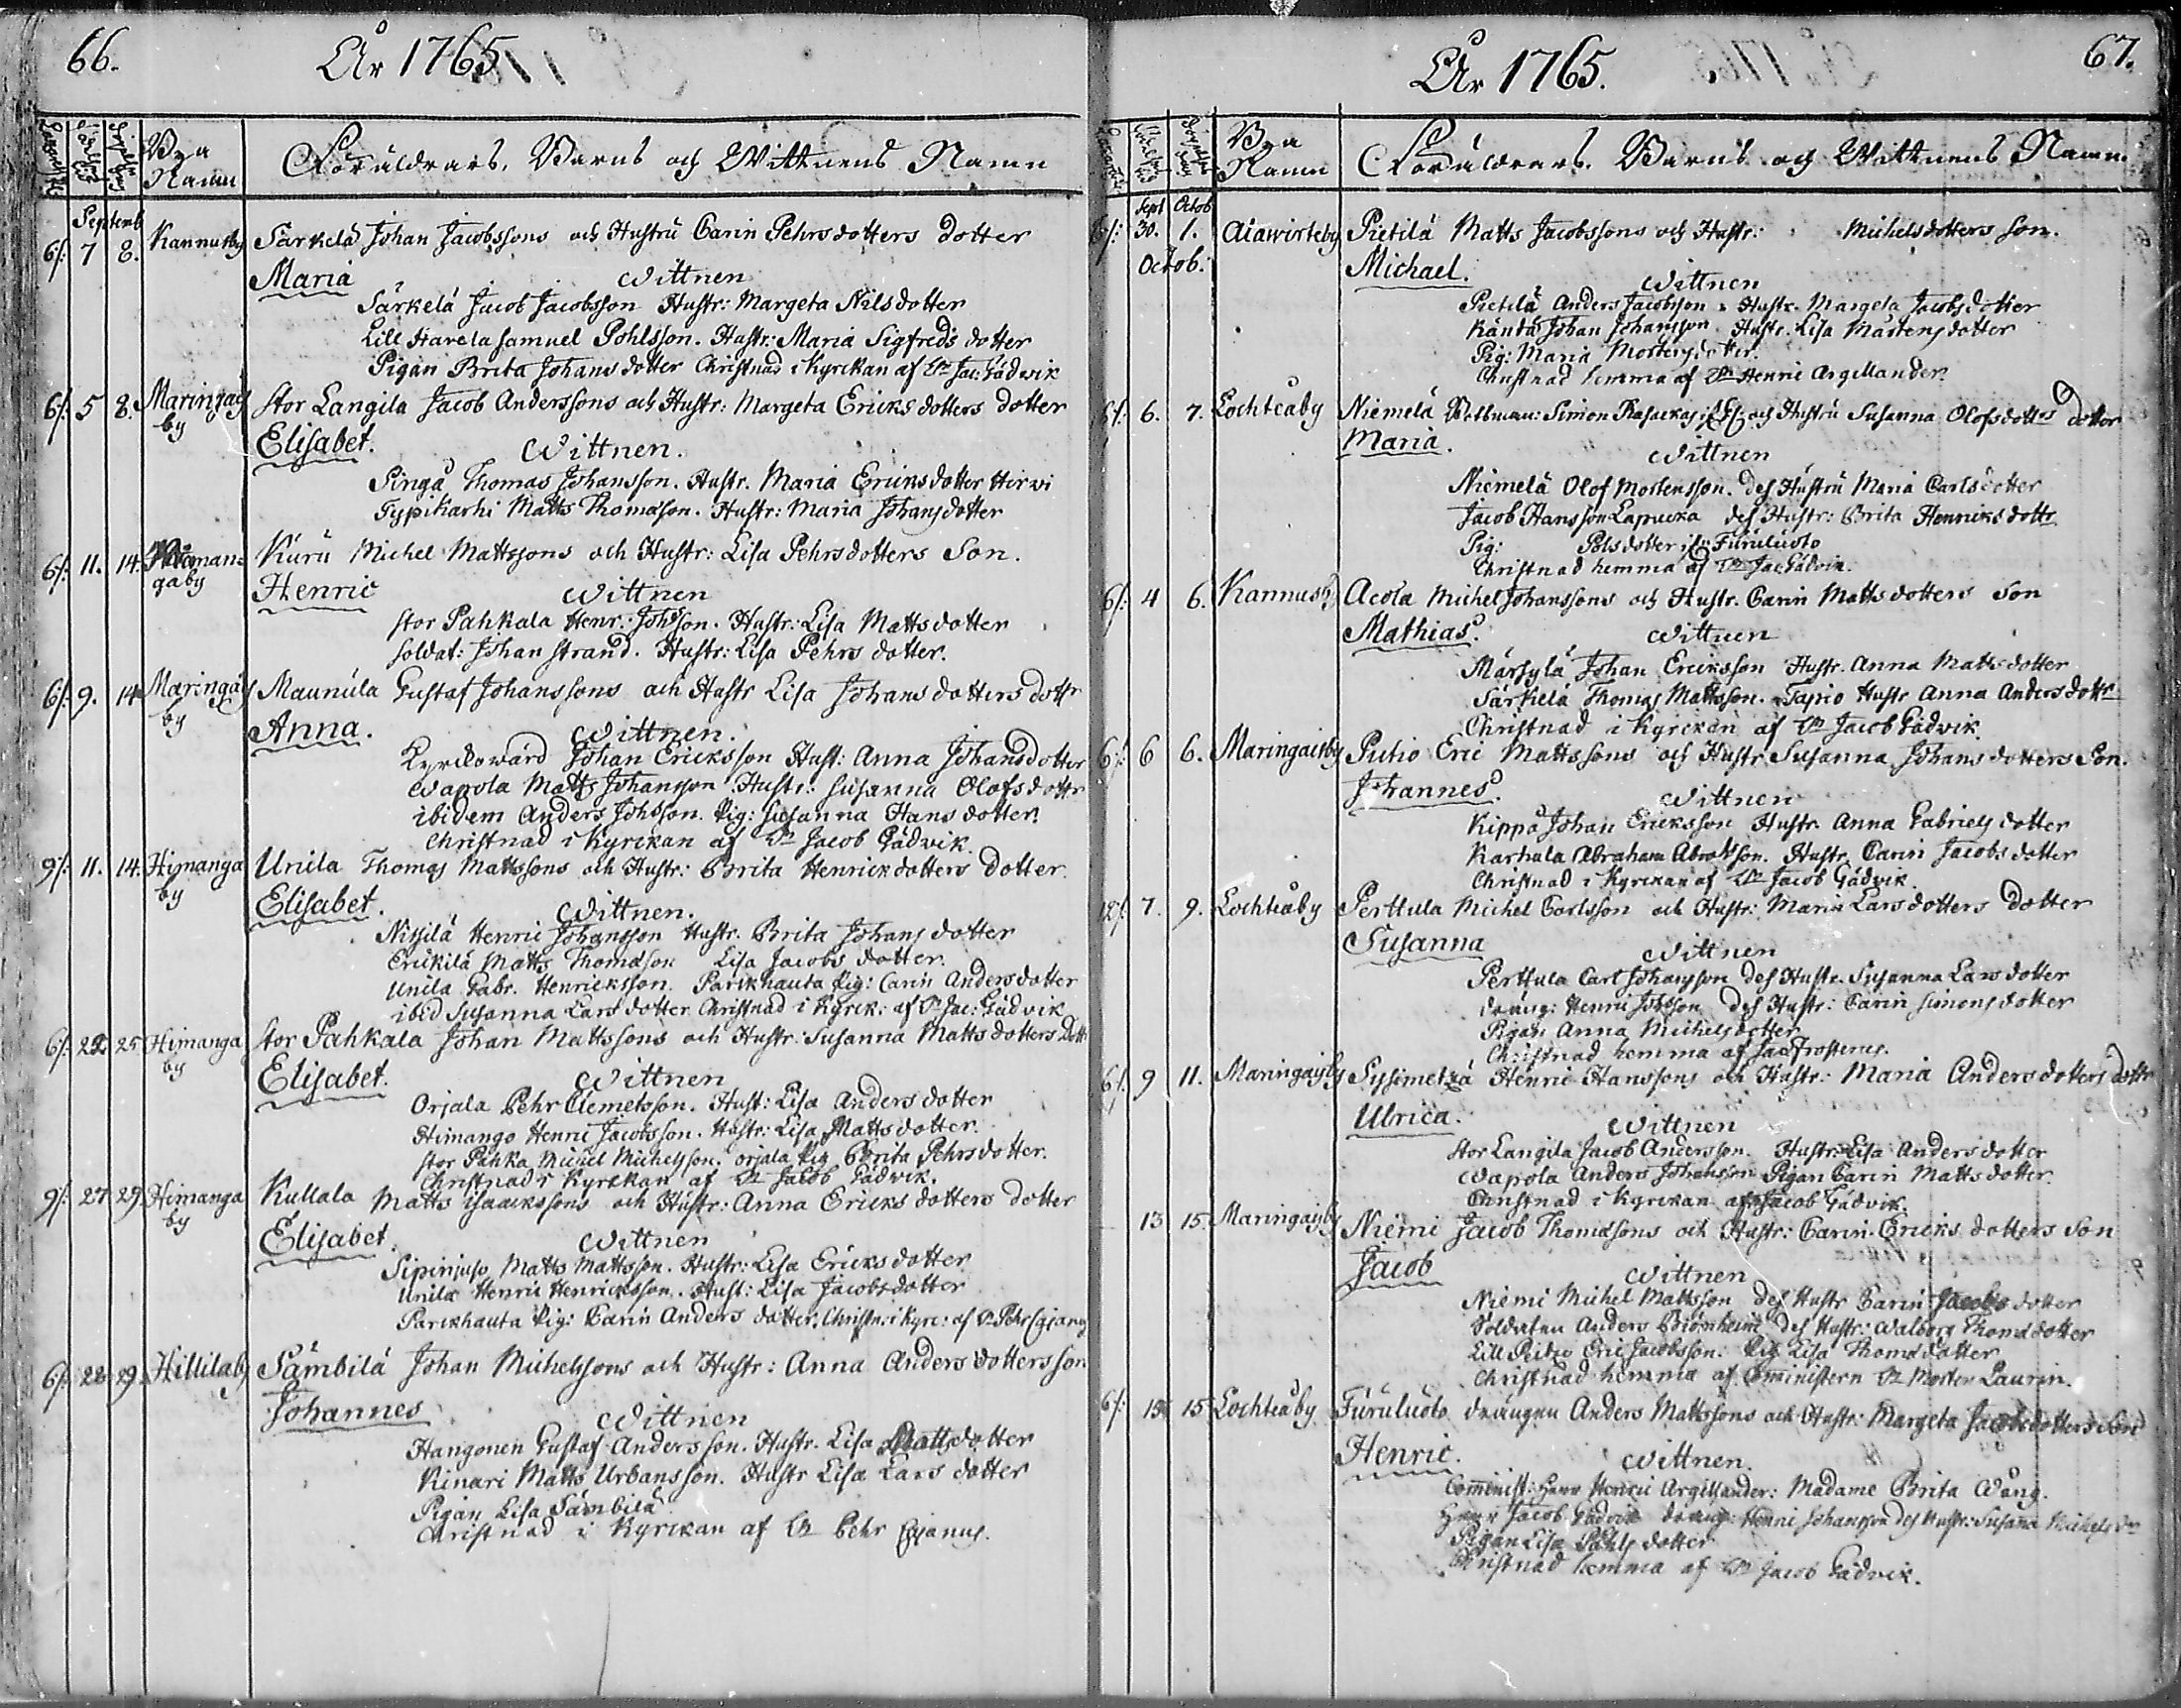 66.
År 1765
Bya
Namn
Föräldrars, Barns och Wittnens Namn
Septemb
6/: 7 8. Kannusby Särkelä Johan Jacobssons och Hustru Carin Pehrsdotters dotter
Maria Wittnen
Särkelä Jacob Jacobsson Hustr: Margeta Nilsdotter
Lill Havela Samuel Pohlsson. Hustr: Maria Sigfreds dotter
Pigan Brita Johans dotter Christnad i Kyrckan af Dn Jac: Gådvik
6/: 5 8. Maringais
by
Stor Langila Jacob Anderssons och Hustr: Margeta Ericksdotters dotter
Elisabet. Wittnen.
Singa Thomas Johansson. Hustr. Maria Ericksdotter Hirvi
Typikarhi Matts Thomasson. Hustr: Maria Johansdotter
6/: 11. 14. Himan=
gaby
Kuru Michel Mattssons och Hustr: Lisa Pehrsdotters Son.
Henric Wittnen
Stor Pahkala Henr: Johsson. Hustr: Lisa Mattsdotter
Soldat: Johan Strand. Hustr: Lisa Pehrs dotter.
6/: 9. 14 Maringais
by
Maunula Gustaf Johanssons och Hustr Lisa Johans dotters dottr
Anna. Wittnen.
Kyrckowärd Johan Ericksson Hust: Anna Johansdotter
Wapola Matts Johansson Hustr: Susanna Olofsdottr
ibidem Anders Johsson. Pig: Susanna Hansdotter.
Christnad i Kyrckan af Dn Jacob Gådvik.
9/: 11. 14. Himanga
by
Unila Thomas Mattssons och Hustr: Brita Henricksdotters Dotter
Elisabet. Wittnen.
Nissilä Henric Johansson Hustr. Brita Johans dotter
Erickilä Matts Thomasson Lisa Jacobs dotter.
Unila Gabr. Henricksson. Parckhauta Pig: Carin Andersdotter
ibid Susanna Lars dotter Christnad i Kyrck: af Dn Jac: Gådvik
6/: 22 25 Himanga
by
Stor Pahkala Johan Mattssons och Hustr: Susanna Mattsdotters Dott:
Elisabet. Wittnen
Orjala Pehr Clemetsson. Hust: Lisa Anders dotter
Himango Henric Jacobsson. Hustr: Lisa Mattsdotter.
Stor Pahka Michel Michelsson. orjala Pig Brita Pehrsdotter.
Christnad i Kyrckan af Dn Jacob Gådvik.
9/: 27 29 Himanga
by
Kullala Matts Isaackssons och Hustr: Anna Ericks dotters dotter
Elisabet. Wittnen
Sipinjuso Matts Mattsson. Hustr: Lisa Ericksdotter
Unila Henric Henricksson. Hust: Lisa Jacobsdotter
Parckhauta Pig: Carin Anders dotter. Christn: i Kyrc: af Dn Pehr Cajanus
6/: 28 29. Hillilaby Sämbilä Johan Michelssons och Hustr: Anna Anders dotters son
Johannes Wittnen
Hangonen Gustaf Andersson. Hustr. Lisa Mattsdotter
Kinari Matts Urbansson. Hustr Lisa Lars dotter
Pigan Lisa Sämbilä
Christnad i Kyrckan af Dn Pehr Cajanus.
67.
År 1765.
Bya
Namn
Föräldrars, Barns och Wittnens Namn
Sept Octob
6/: 30. 1. Aiawirteby Pietilä Matts Jacobssons och Hustr: Michelsdotters Son.
Octob:
Michael. Wittnen
Pietilä Anders Jacobsson Hustr. Margeta Jacobsdotter
Kanda Johan Johansson Hustr. Lisa Mårtensdotter
Pig: Maria Mortensdotter.
Christnad hemma af Dn Henric Argillander.
6/: 6. 7. Lochteåby Niemelä Simon och Hustru Susanna Olofsdottrs dotter
Maria. Wittnen
Niemelä Olof Mortensson. des Hustru Maria Carlsdotter
Jacob Hansson Lapucka des Hustr: Brita Henricksdottr
Pig: Polsdotter Furuluoto
Christnad hemma af Dn Jac Gådvik.
6/: 4 6. Kannusby Acola Michel Johanssons och Hustr. Carin Mattsdotters Son
Mathias. Wittnen
Märsylä Johan Ericksson Hustr. Anna Mattsdotter
Särkelä Thomas Mattsson. Tapio Hustr Anna Andersdottr
Christnad i Kyrckan af Dn Jacob Gådvik.
6/: 6 6. Maringaisby Putio Eric Mattssons och Hustr Susanna Johans dotters Son.
Johannes. Wittnen
Kippo Johan Ericksson Hustr. Anna Gabriels dotter
Karhula Abraham Abramsson. Hustr. Carin Jacobs dotter
Christnad i Kyrckan af Dn Jacob Gådvik.
12/: 7. 9. Lochteåby Perttula Michel Carlsson och Hustr: Maria Larsdotters Dotter
Susanna Wittnen
Perttula Carl Johansson des Hustr. Susanna Larsdotter
dräng: Henric Johsson des Hustr: Carin Simonsdotter
Pigan Anna Michelsdotter
Christnad hemma af Jac Frosterus.
6/: 9 11. Maringaisby Sysimetzä Henric Hanssons och Hustr: Maria Andersdotters dottr
Ulrica. Wittnen
Stor Langila Jacob Andersson. Hustr: Lisa Andersdotter
Wapola Anders Johansson Pigan Carin Mattsdotter.
Christnad i Kyrckan af Dn Jacob Gådvik.
13 15 Maringaisby Niemi Jacob Thomassons och Hustr: Carin Ericks dotters Son
Jacob Wittnen
Niemi Michel Mattsson des Hustr Carin Jacobs dotter
Soldaten Anders Biörnheim des Hustr: Walborg Thomasdotter
Lill Peitzo Eric Jacobsson: Pig Lisa Thomasdotter
Christnad hemma af Cministern Dn Morten Laurin.
6/: 13 15 Lochteåby Furuluoto drängen Anders Mattssons och Hustr: Margeta Jacobsdotters Son
Henric. Wittnen.
Comminist: Herr Henric Argillander: Madame Brita Wång.
Herr Jacob Gådvik dräng: Henric Johansson des Hustr: Susanna Michelsdr
Pigan Lisa Påhls dotter
Christnad hemma af Dn Jacob Gådvik.